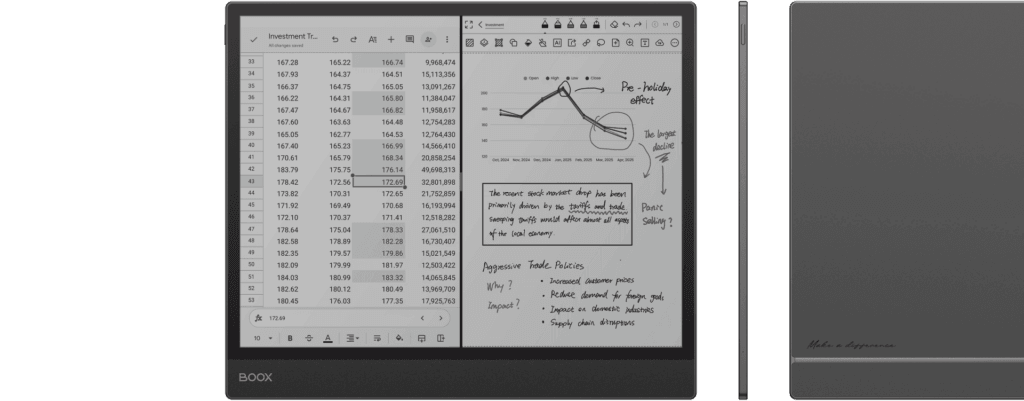 Investment Tr...
All changes saved
33 167.28 165.22 166.74 9,968,474
34 167.93 164.37 164.51 15,113,356
35 166.37 164.75 165.05 13,091,267
36 166.22 164.31 165.80 11,384,047
37 167.47 164.67 166.82 11,958,617
38 167.60 163.63 164.48 12,754,283
39 165.05 162.77 164.53 12,764,430
40 167.40 165.23 166.99 14,566,410
41 170.61 165.79 168.34 20,858,254
42 183.79 175.75 176.14 49,698,313
43 178.42 172.56 172.69 32,801,898
44 173.82 170.31 172.65 21,752,859
45 171.92 169.49 170.68 16,193,994
46 172.10 170.37 171.41 12,518,282
47 178.64 175.04 178.33 27,061,510
48 182.58 178.89 182.28 16,730,407
49 182.35 179.57 179.86 15,021,549
50 182.09 179.99 181.97 12,503,422
51 184.03 180.99 183.32 14,065,845
52 182.62 180.12 180.49 13,969,709
53 180.45 176.03 177.35 17,925,763
fx 172.69
10 B S A
BOOX
Investment
Open High Low Close
Oct, 2024 Nov, 2024 Dec, 2024 Jan, 2025 Feb, 2025 Mar, 2025 Apr, 2025
Pre-holiday
effect
The largest
decline
Panic
Selling?
The recent stock market drop has been
primarily driven by the tariffs and trade
sweeping tariffs would affect almost all aspects
of the local economy.
Aggressive Trade Policies
Why?
Impact?
• Increased customer prices
• Reduce demand for foreign goods
• Impact on domestic industries
• Supply chain disruptions
Make a difference